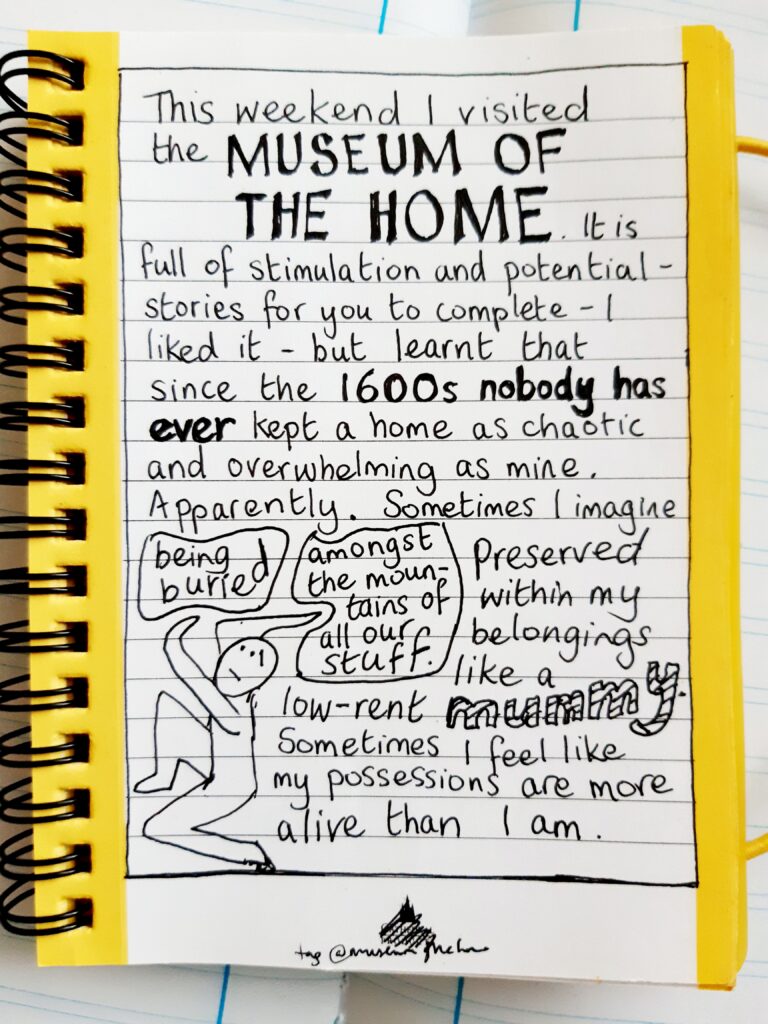 This weekend I visited
the MUSEUM OF
THE HOME. It is
full of stimulation and potential -
stories for you to complete - I
liked it - but learnt that
since the 1600s nobody has
ever kept a home as chaotic
and overwhelming as mine.
Apparently. Sometimes I imagine
being
buried
amongst
the moun-
tains of
all our
stuff.
Preserved
within my
belongings
like a
low-rent mummy.
Sometimes I feel like
my possessions are more
alive than I am.
tag